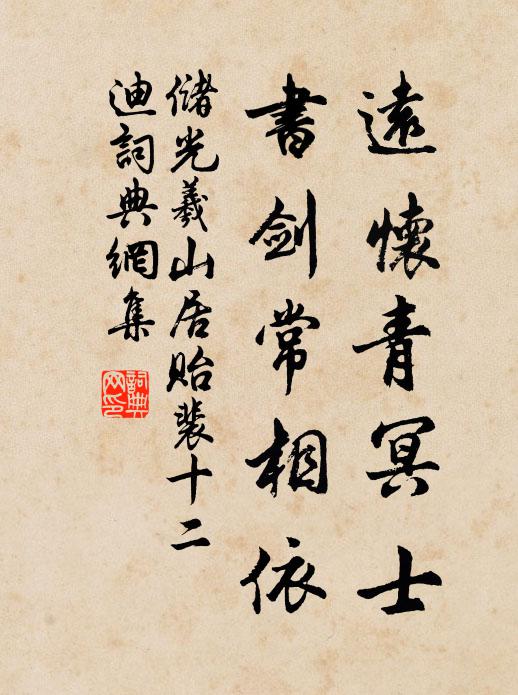 遠懷青冥士
書劍常相依
儲光羲山居貽裴十二
迪詞典網集
詞典
网印